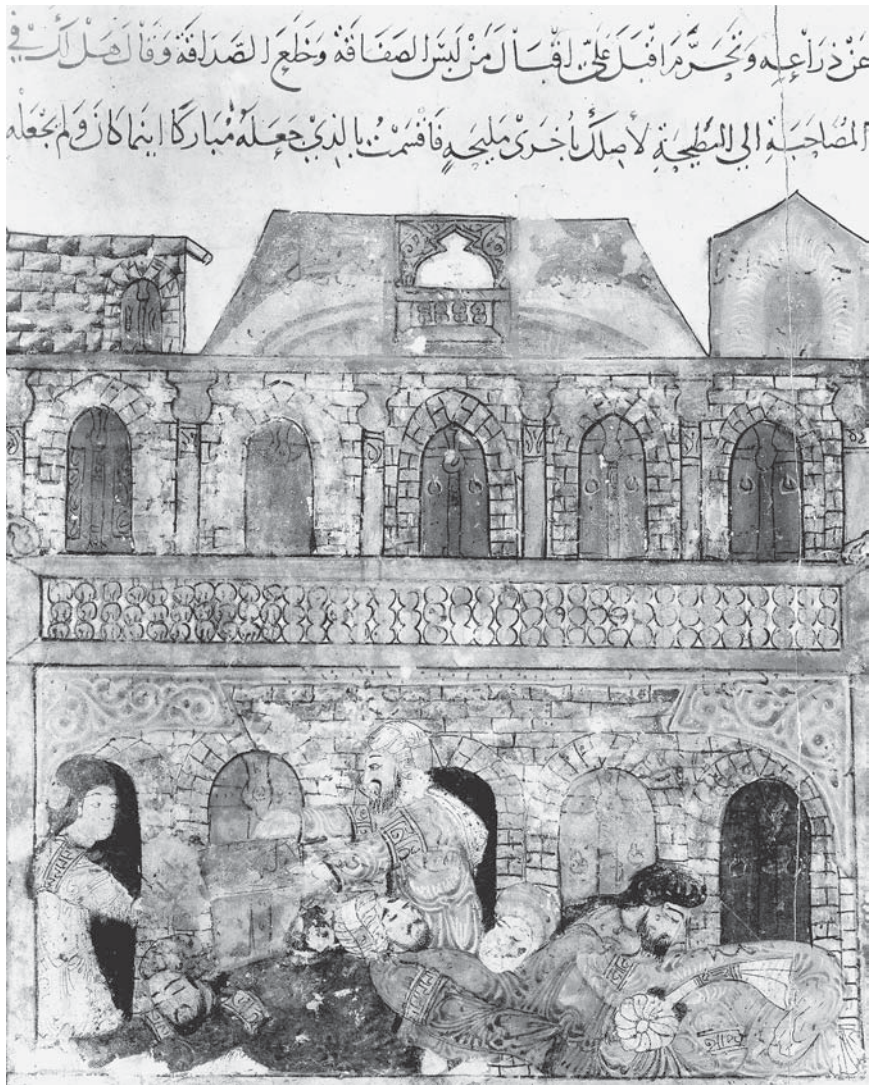 عَنْ ذِرَاعِهِ وَتَحَزَّمَ اقْبَلَ عَلَيَّ اقْبَالَ مَنْ لَبِسَ الصَفَاقَةَ وَخَلَعَ الصَّدَاقَةَ وَقَالَ هَلْ لَكَ فِي
المُصَاحَبَةِ الي البَطِيحَةِ لأصِلَكَ بأُخرَى مَلِيحَةٍ فَاقْسَمْتُ بالذِيْ جَعَلَهُ مُبَارَكًا اينَمَا كَانَ وَلَمْ يَجْعَلْهُ